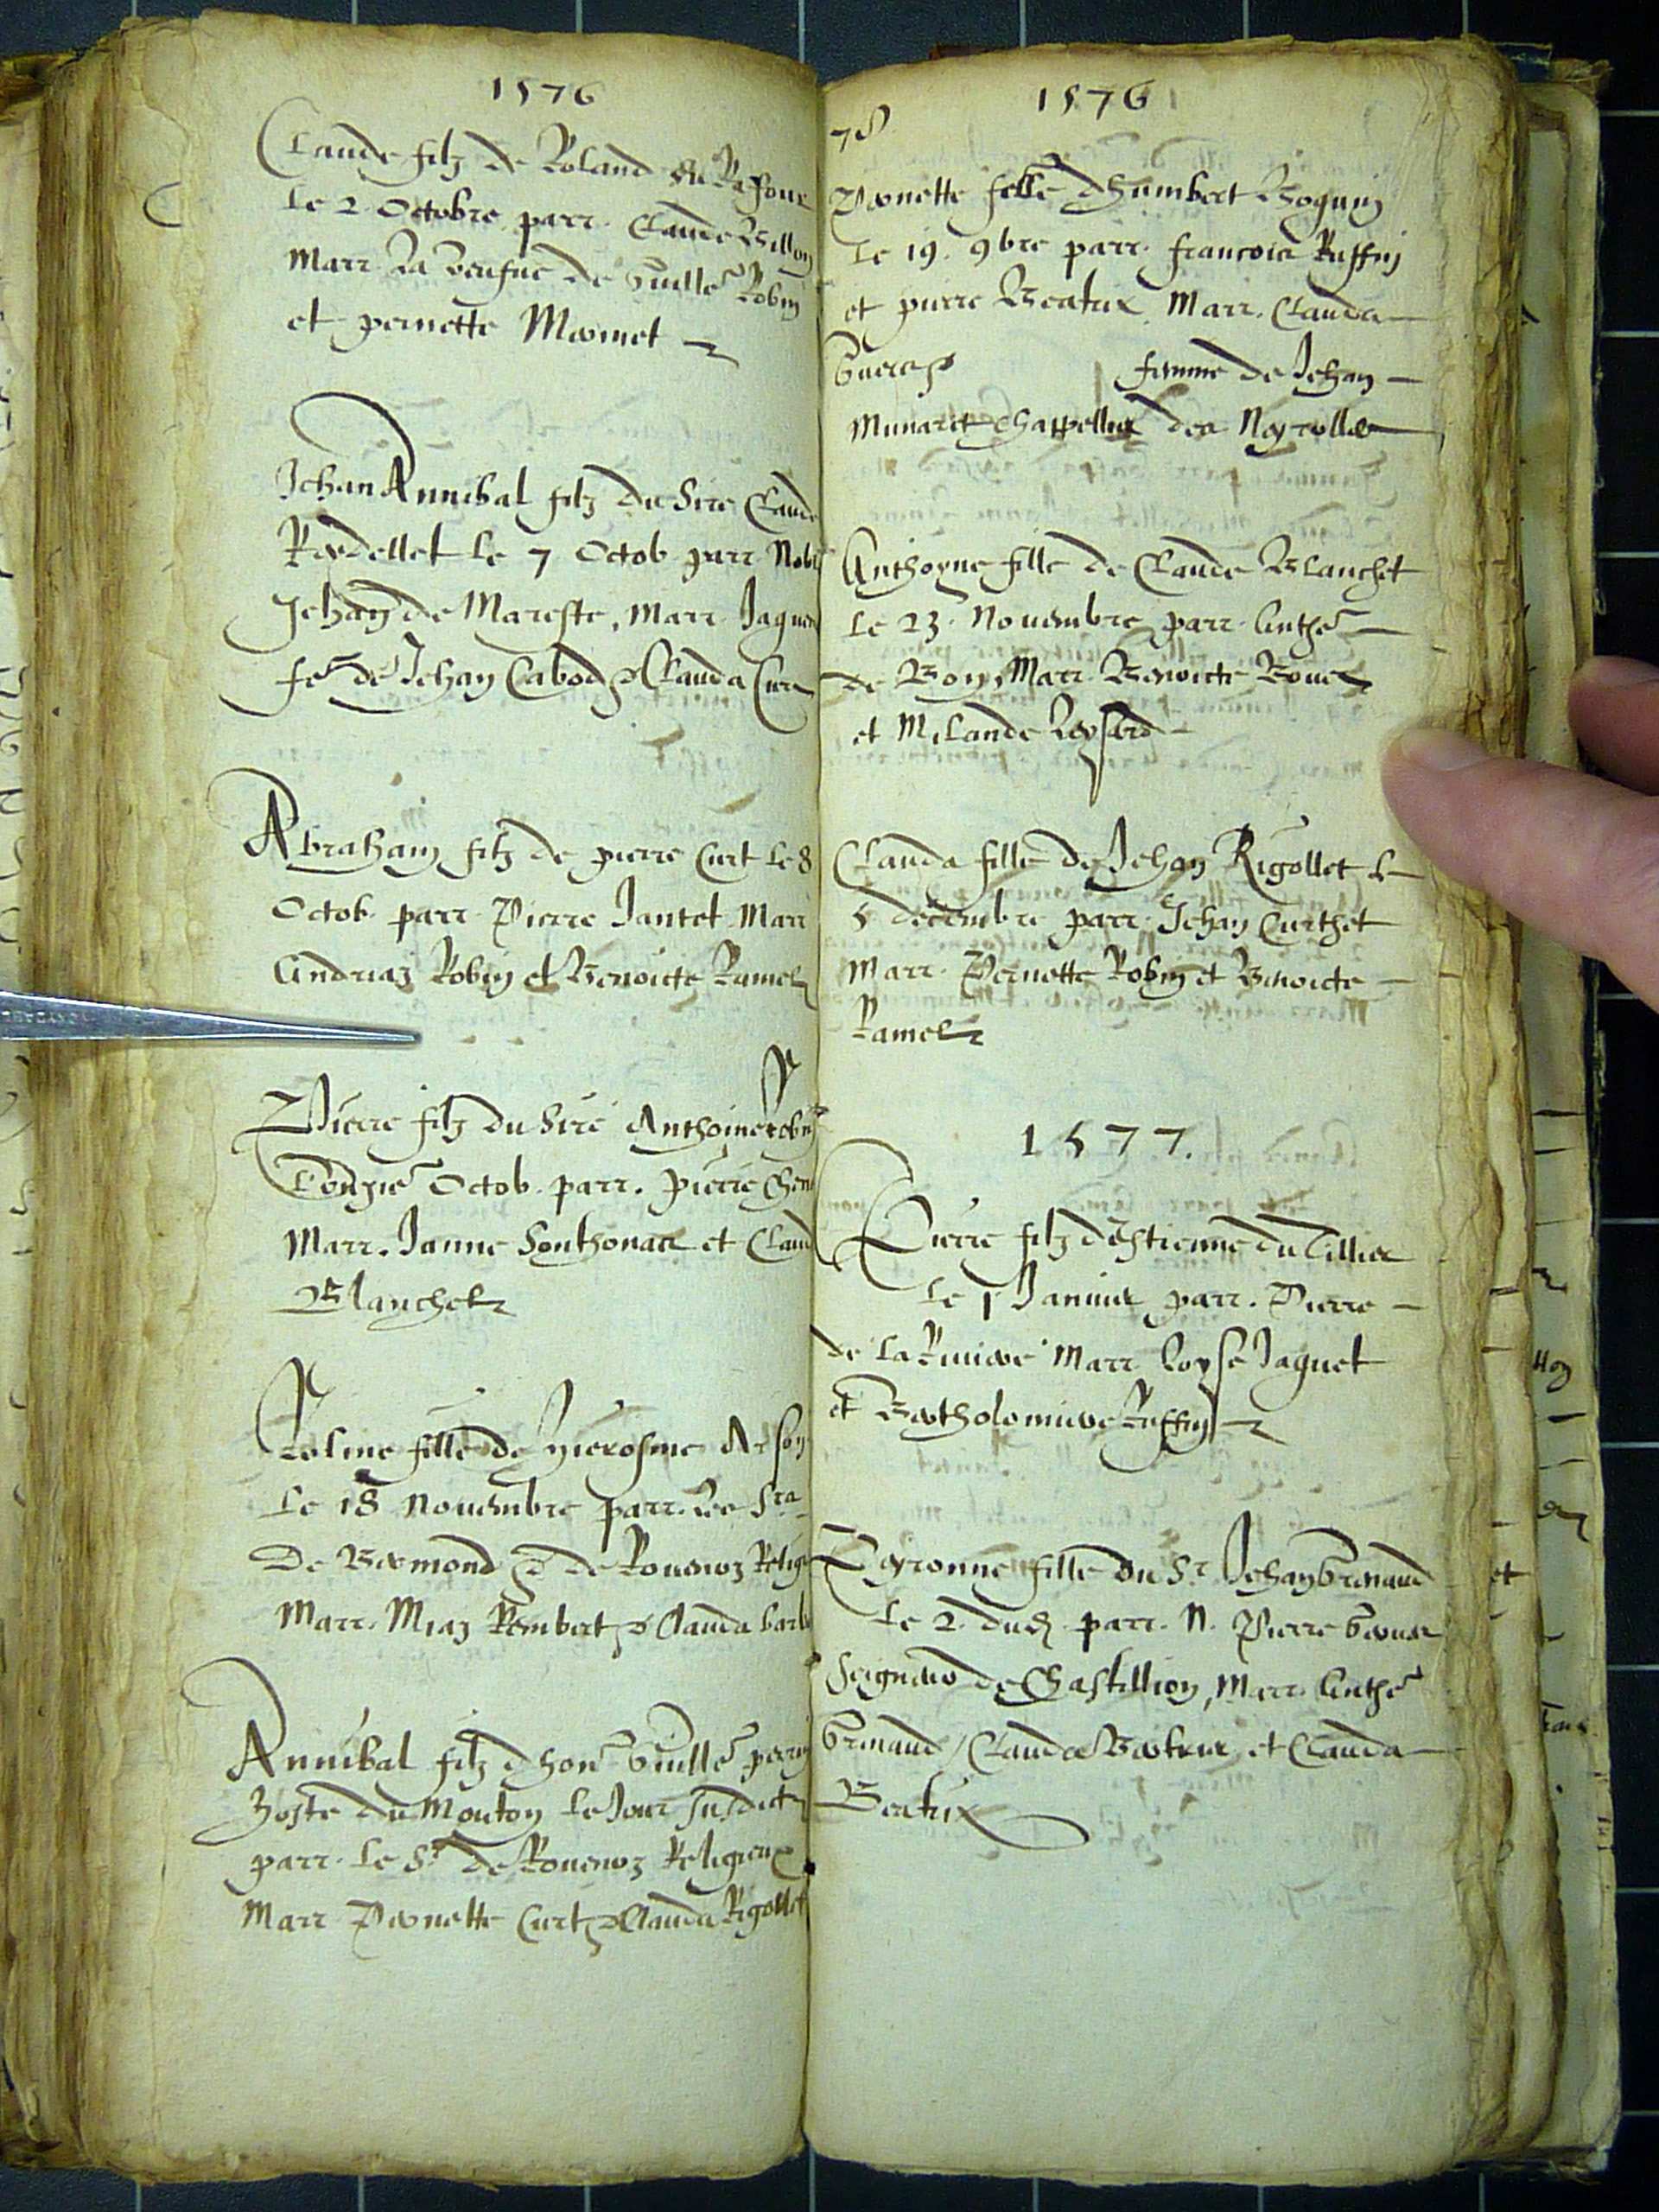 1576
Claude filz de Roland du Rafour
le 2 Octobre parr. Claude Billon
Marr. La veufue de Vuille Robin
et pernette Mermet
Jehan Annibal filz du Sire Claude
Roedellet le 7 Octob parr. Noble
Jehan de Mareste, Marr. Jaquem
fe de Jehan Cabod & Clauda
Abraham filz de pierre Curt le 8
Octob. parr. Pierre Jantet Marr
Andriaz Robin et Benoicte Ramel
Pierre filz du Sire Anthoine Robin
Octob. parr. pierre
Marr. Janne Sonthonax et Claud
Blanchet
Poline fille de Hierosme
le 18 Novembre parr. les Srs
De Bermond & de Rouenoz Relig
Marr. Miaz Rembert & Clauda Barb
Annibal filz dhon Vuille perrin
hoste du Mouton le Jour susdict
parr. le Sr de Rouenoz Religieux
Marr. Pernette Curt & Clauda Rigollet
1576
78
Pernette fille dhumbert Boguin
le 19. 9bre parr. francois Ruffin
et pierre Beatrix. Marr. Clauda
femme de Jehan
Munaret Chappellier des Neyrolles
Anthoyne fille de Claude Blanchet
le 23. Novembre parr. Anthe
de Bon, Marr. Benoicte
et Milande
Clauda fille de Jehan Rigollet le
5 decembre parr. Jehan Curthet
Marr. Pernette Robin et Benoicte
Ramel
1577.
Pierre filz dEstienne du Tillier
le 1 Januier parr. Pierre
de la Riuiere Marr. Loyse Jaquet
et Bartholomiere Ruffin
Peyronne fille du Sr Jehan Grinaud
le 2. dud. parr. N. Pierre
Seigneur de Chastillion, Marr. Anthe
Grinaud, Clauda Beatrix et Clauda
Beatrix